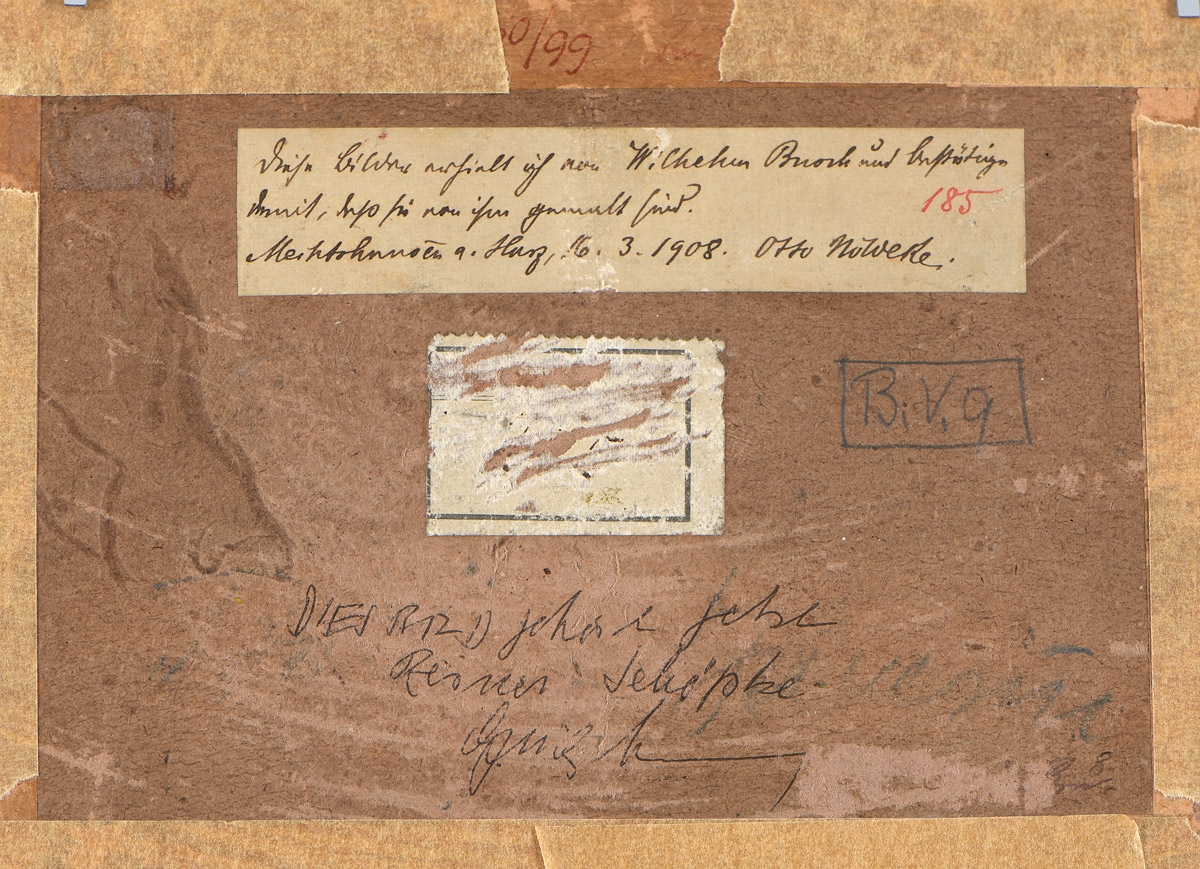 0/99
Diese Bilder erhielt ich von Wilhelm Busch und bestätige
damit, daß sie von ihm gemalt sind.
185
Mechtshausen a. Harz, 16. 3. 1908. Otto Nöldeke.
B.V.9
DIES BILD gehört jetzt
Reiner Schöpke